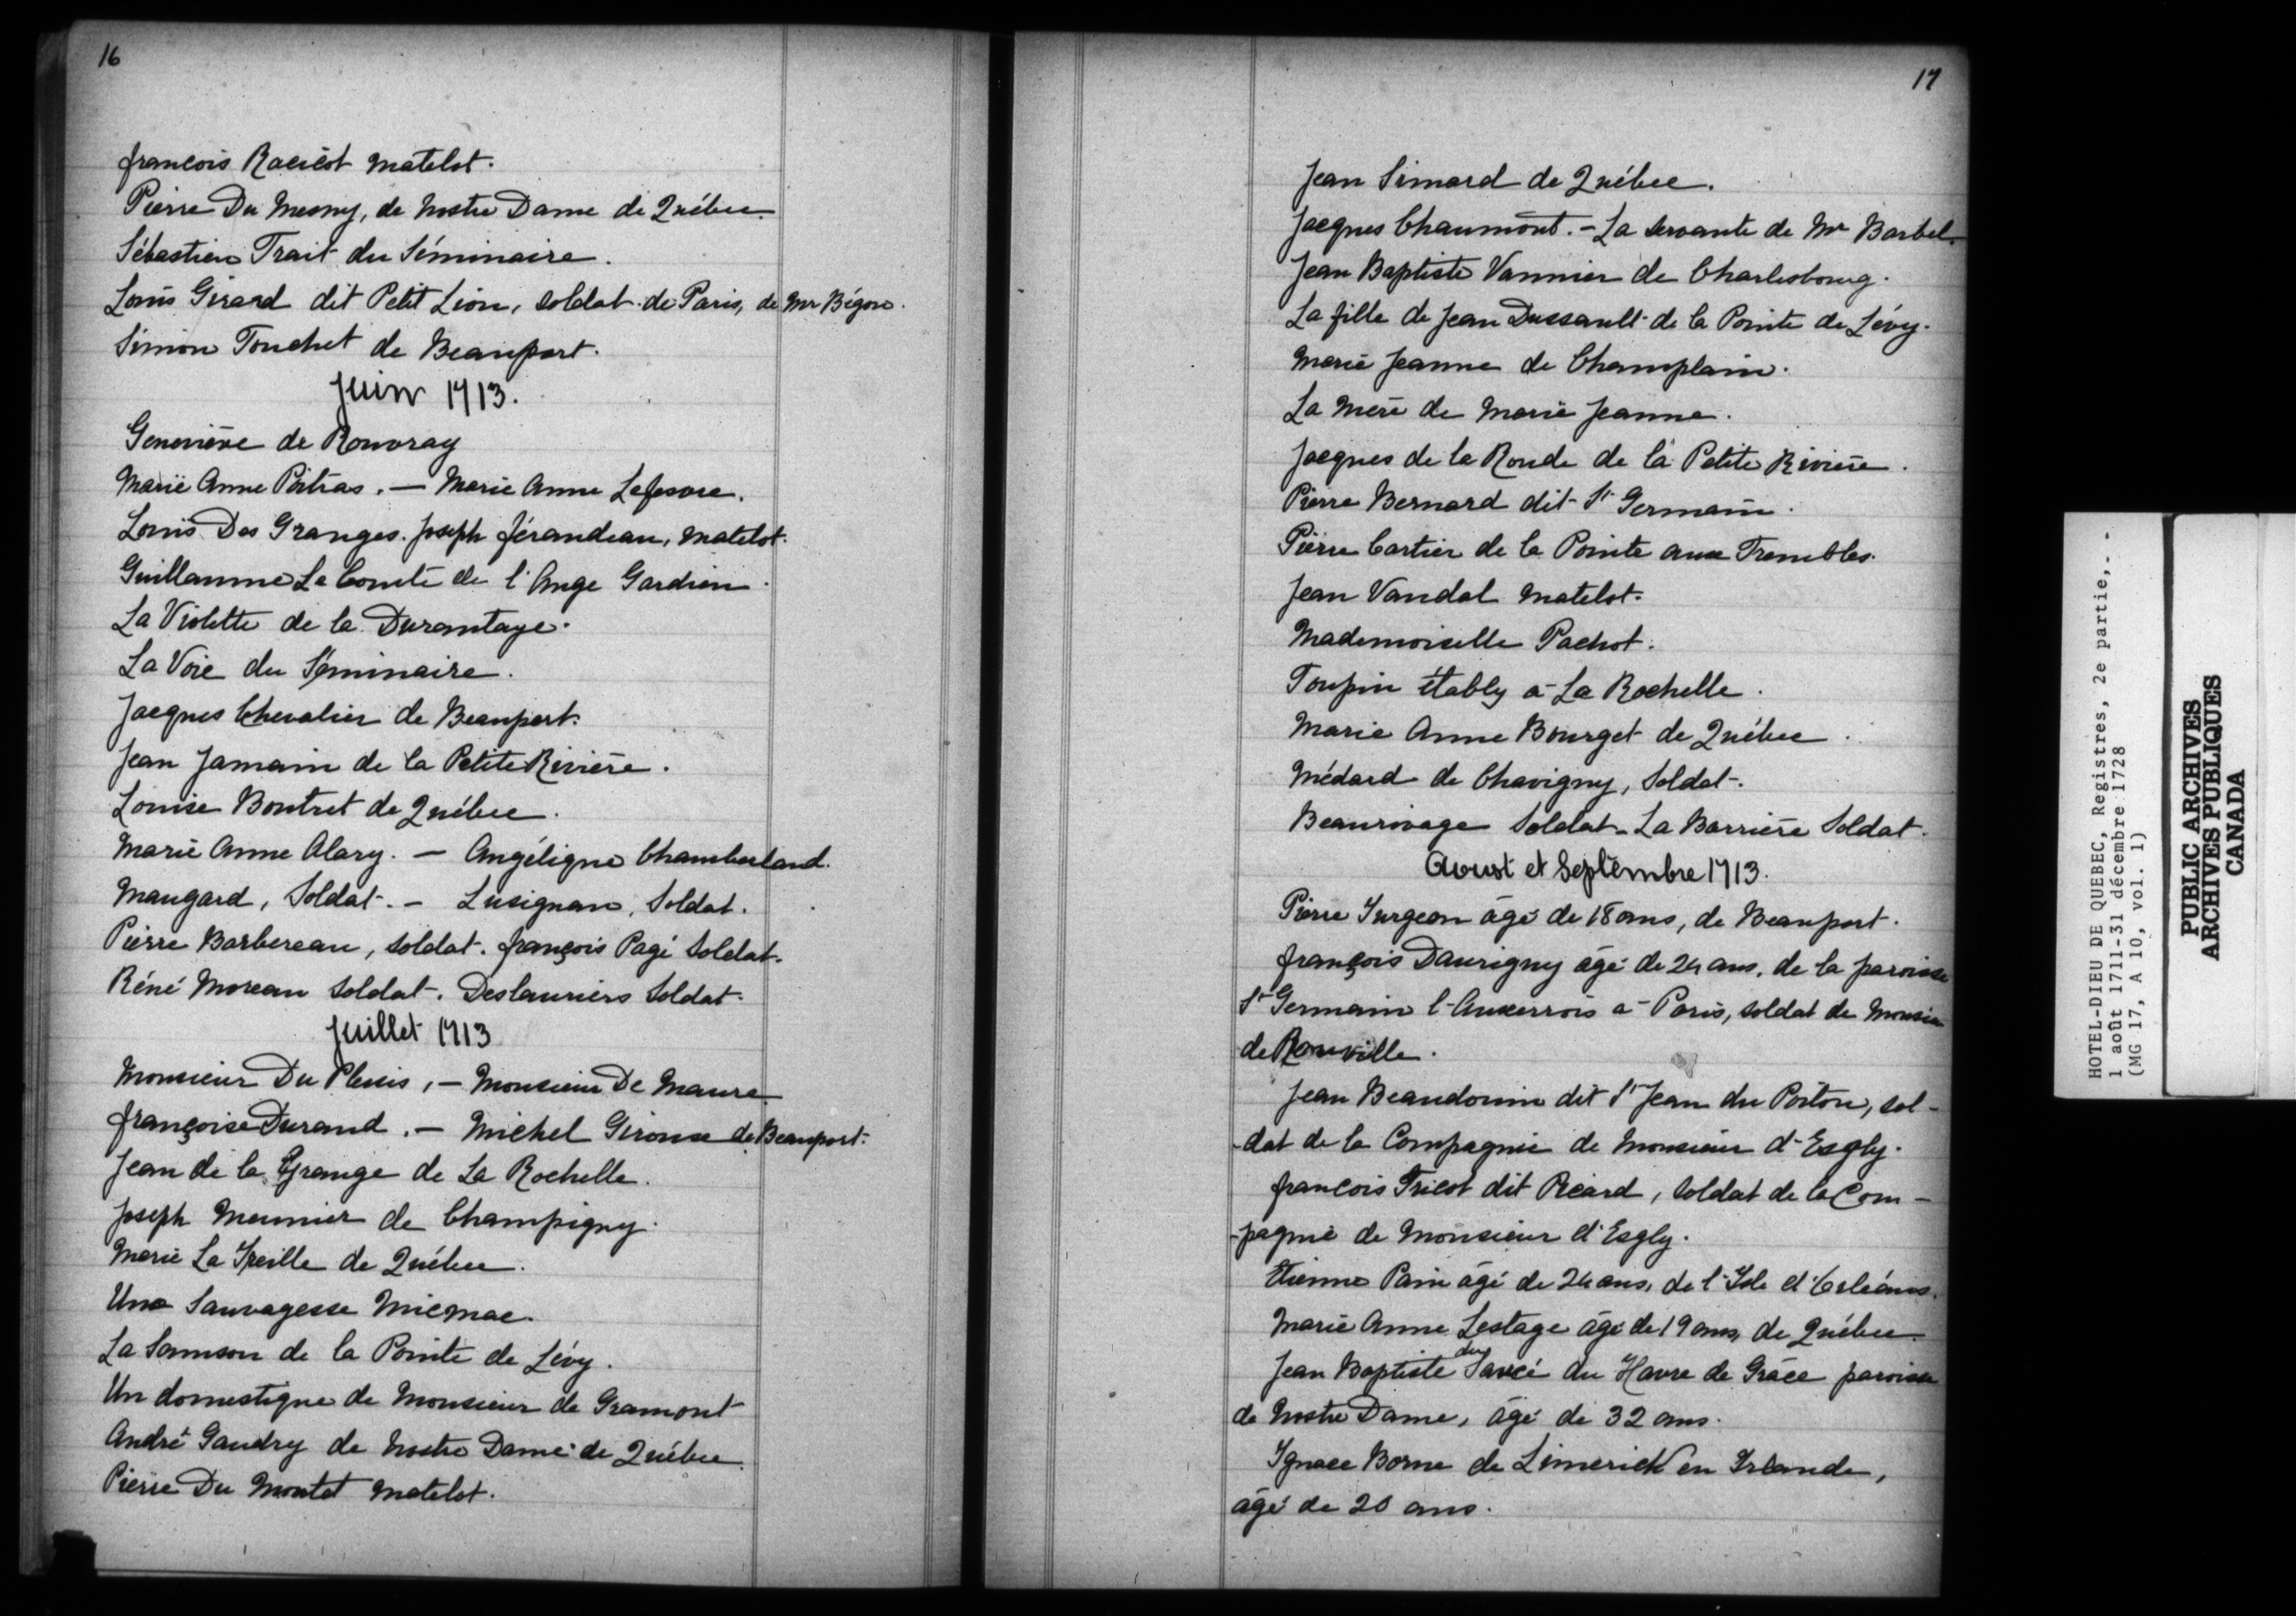 16
françois Racicot matelot.
Pierre Du Mesny, de Nostre Dame de Québec.
Sébastien Trait du Séminaire.
Louis Girard dit Petit Lion, soldat de Paris, de Mr Bégon.
Simon Touchet de Beauport.
Juin 1713.
Geneviève de Rouvray
Marie Anne Poitras. — Marie Anne Lefesvre.
Louis Des Granges. Joseph férandeau, matelot.
Guillaume Le Comte de l'Ange Gardien.
La Violette de la Durantaye.
La Voie du Séminaire.
Jacques Chevalier de Beauport.
Jean Jamain de la Petite Rivière.
Louise Boutret de Québec.
Marie Anne Alary. — Angélique Chamberland.
Maugard, Soldat. — Lusignan, Soldat.
Pierre Barbereau, soldat. françois Pagé Soldat.
Réné Moreau Soldat. Deslauriers Soldat.
Juillet 1713
Monsieur Du Plessis, — Monsieur De Maure.
françoise Durand. — Michel Giroux de Beauport.
Jean de la Grange de La Rochelle.
Joseph Meunier de Champigny.
Marie La Treille de Québec.
Une Sauvagesse Micmac.
La Samson de la Pointe de Lévy.
Un domestique de Monsieur de Gramont
André Gaudry de Nostre Dame de Québec.
Pierre Du Montet Matelot.
17
Jean Simard de Québec.
Jacques Chaumont. — La servante de Mr Barbel.
Jean Baptiste Vannier de Charlesbourg.
La fille de Jean Dussault de la Pointe de Lévy.
Marie Jeanne de Champlain.
La Mère de Marie Jeanne.
Jacques de la Ronde de la Petite Rivière.
Pierre Bernard dit St Germain.
Pierre Cartier de la Pointe aux Trembles.
Jean Vandal Matelot.
Mademoiselle Pachot.
Toupin étably à La Rochelle.
Marie Anne Bourget de Québec.
Médard de Chavigny, Soldat.
Beaurivage Soldat — La Barrière Soldat.
Aoust et Septembre 1713.
Pierre Turgeon âgé de 18 ans, de Beauport.
françois Daurigny âgé de 24 ans, de la paroisse
St Germain l'Auxerrois à Paris, soldat de Monsieu
de Rouville.
Jean Beaudouin dit St Jean du Poitou, sol-
-dat de la Compagnie de Monsieur d'Esgly.
françois Tricot dit Picard, Soldat de la Com-
-pagnie de Monsieur d'Esgly.
Etienne Pain âgé de 24 ans, de l'Isle d'Orléans.
Marie Anne Lestage âgé de 19 ans, de Québec.
Jean Baptiste du Sarcé du Havre de Grâce paroisse
de Nostre Dame, âgé de 32 ans.
Ignace Borne de Limerick en Irlande,
âgé de 20 ans.
HOTEL-DIEU DE QUEBEC, Registres, 2e partie,- -
1 août 1711-31 décembre 1728
(MG 17, A 10, vol. 1)
PUBLIC ARCHIVES
ARCHIVES PUBLIQUES
CANADA